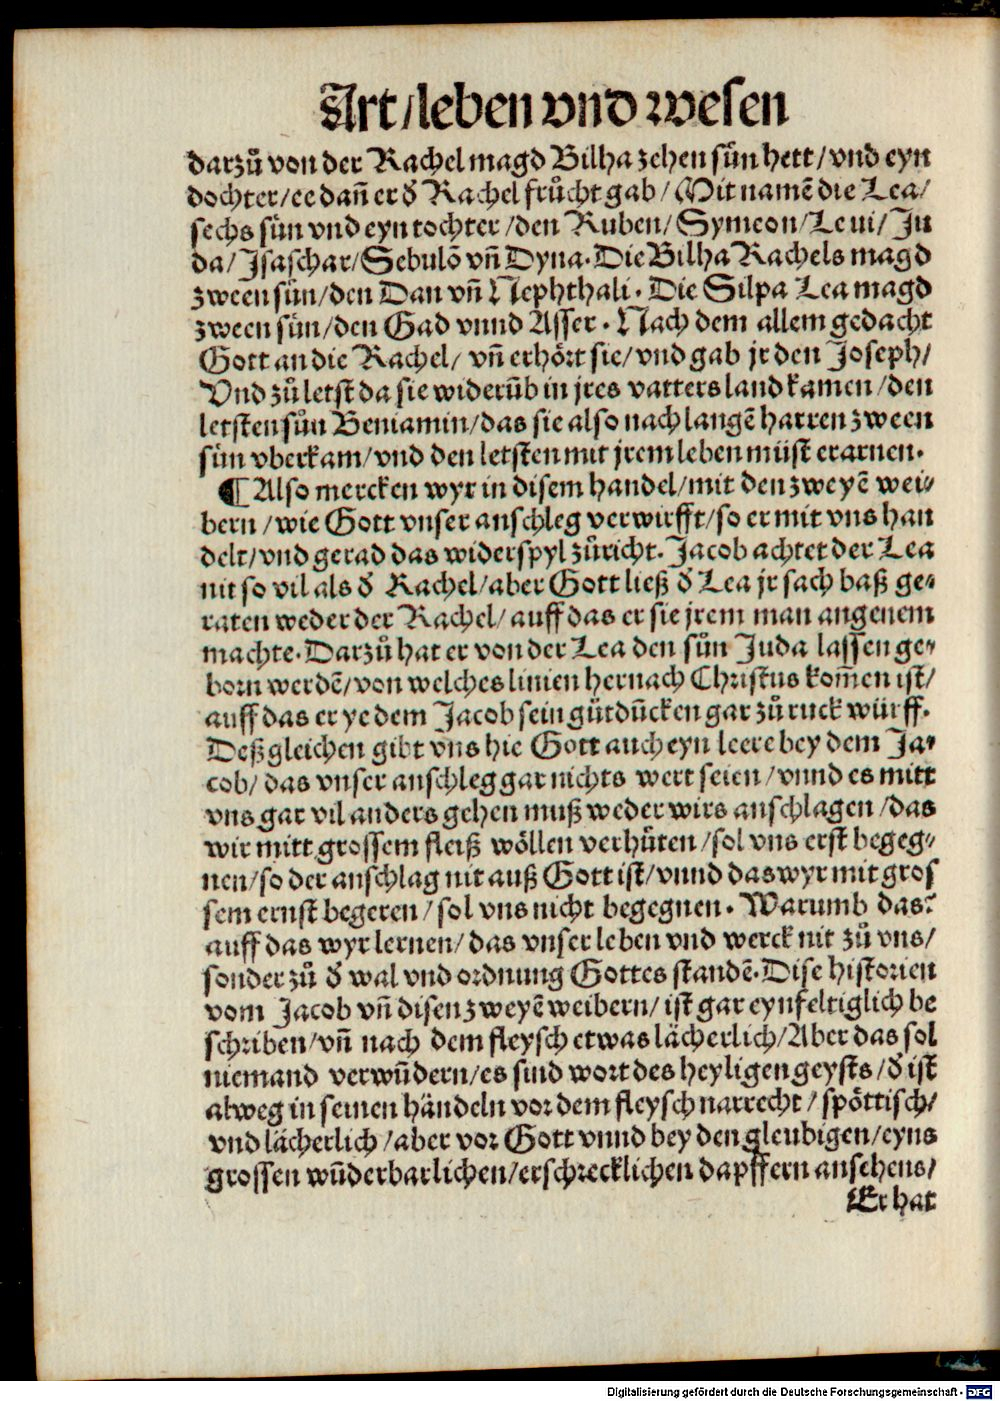 Art/leben vnd wesen
darzuͦ von der Rachel magd Bilha zehen suͤn hett/vnd eyn
dochter/ee dañ er d' Rachel fruͤcht gab/Mit namē die Lea/
sechs suͤn vnd eyn tochter/den Ruben/Symeon/Leui/Ju
da/Jsaschar/Sebulō vñ Dyna. Die Bilha Rachels magd
zween suͤn/den Dan vñ Nephthali. Die Silpa Lea magd
zween suͤn/den Gad vnnd Asser. Nach dem allem gedacht
Gott an die Rachel/ vñ erhoͤrt sie/vnd gab jr den Joseph/
Vnd zuͦ letst da sie widerūb in jres vatters land kamen/den
letsten suͦn Beniamin/das sie also nach langē harren zween
suͤn vberkam/vnd den letsten mit jrem leben muͤst erarnen.
¶ Also mercken wyr in disem handel/mit den zweyē wei⸗
bern/wie Gott vnser anschleg verwirfft/so er mit vns han
delt/vnd gerad das widerspyl zuͦricht. Jacob achtet der Lea
nit so vil als d' Rachel/aber Gott ließ d' Lea jr sach baß ge⸗
raten weder der Rachel/auff das er sie jrem man angenem
machte. Darzuͦ hat er von der Lea den suͦn Juda lassen ge⸗
born werdē/von welches linien hernach Christus kom̄en ist/
auff das er ye dem Jacob sein guͤtduͤcken gar zuͦ ruck wuͤrff.
Deßgleichen gibt vns hie Gott auch eyn leere bey dem Ja⸗
cob/das vnser anschleg gar nichts wert seien/vnnd es mitt
vns gar vil anders gehen muß weder wirs anschlagen/das
wir mitt grossem fleiß woͤllen verhuͤten/sol vns erst begeg⸗
nen/so der anschlag nit auß Gott ist/vnnd das wyr mit gros
sem ernst begeren/sol vns nicht begegnen. Warumb das?
auff das wyr lernen/das vnser leben vnd werck nit zuͦ vns/
sonder zuͦ d' wal vnd ordnung Gottes standē. Dise historien
vom Jacob vñ disen zweyē weibern/ist gar eynfeltiglich be
schriben/vñ nach dem fleysch etwas laͤcherlich/Aber das sol
niemand verwūdern/es sind wort des heyligen geysts/d' ist
alweg in seinen haͤndeln vor dem fleysch narrecht/spoͤttisch/
vnd laͤcherlich/aber vor Gott vnnd bey den gleubigen/eyns
grossen wūderbarlichen/erschrecklichen dapffern ansehens/
Er hat
Digitalisierung gefördert durch die Deutsche Forschungsgemeinschaft - DFG